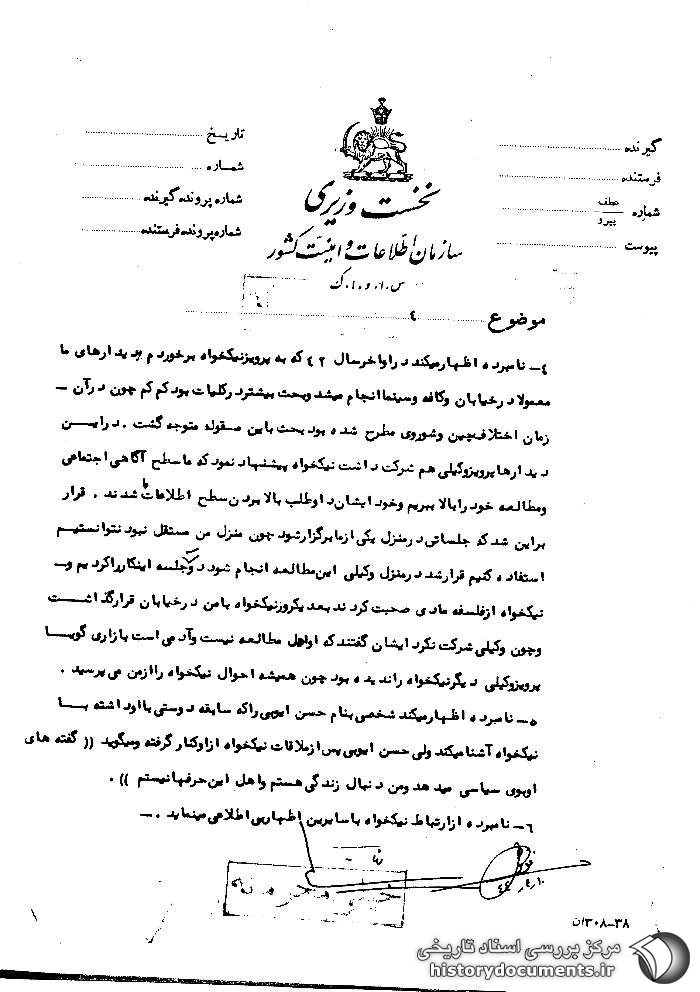 گیرنده
فرستنده
شماره عطف پیرو
پیوست
تاریخ
شماره
شماره پرونده گیرنده
شماره پرونده فرستنده
نخست وزیری
سازمان اطلاعات و امنیت کشور
س.ا.و.ا.ک
موضوع ٤
٤ـ نامبرده اظهار میکند در اواخر سال ٤٢ که به پرویز نیکخواه برخوردم دیدارهای ما
معمولا در خیابان و کافه و سینما انجام میشد و بحث بیشتر در کلیات بود کم کم چون در آن ـ
زمان اختلاف چین و شوروی مطرح شده بود بحث باین مقوله متوجه گشت . در ایــن
دیدارها پرویز وکیلی هم شرکت داشت نیکخواه پیشنهاد نمود که ما سطح آگاهی اجتماعی
و مطالعه خود را بالا ببریم و خود ایشان داوطلب بالا بردن سطح اطلاعات ما شدند . قرار
بر این شد که جلساتی در منزل یکی از ما برگزار شود چون منزل من مستقل نبود نتوانستیم
استفاده کنیم قرار شد در منزل وکیلی این مطالعه انجام شود دو جلسه اینکار را کردیم و ـ
نیکخواه از فلسفه مادی صحبت کردند بعد یکروز نیکخواه با من در خیابان قرار گذاشــت
و چون وکیلی شرکت نکرد ایشان گفتند که او اهل مطالعه نیست و آدمی است بازاری گویــا
پرویز وکیلی دیگر نیکخواه را ندیده بود چون همیشه احوال نیکخواه را از من می پرسید .
٥ـ نامبرده اظهار میکند شخصی بنام حسن ایوبی را که سابقه دوستی با او داشته بــا
نیکخواه آشنا میکند ولی حسن ایوبی پس از ملاقات نیکخواه از او کنار گرفته و میگوید (( گفته های
او بوی سیاسی میدهد و من دنبال زندگی هستم و اهل این حرفها نیستم )) .
٦ـ نامبرده از ارتباط نیکخواه با سایرین اظهار بی اطلاعی مینماید . ـ
٤٤
خیلی محرمانه
٣٨ـ٣٠٨ان
مرکز بررسی اسناد تاریخی
historydocuments.ir